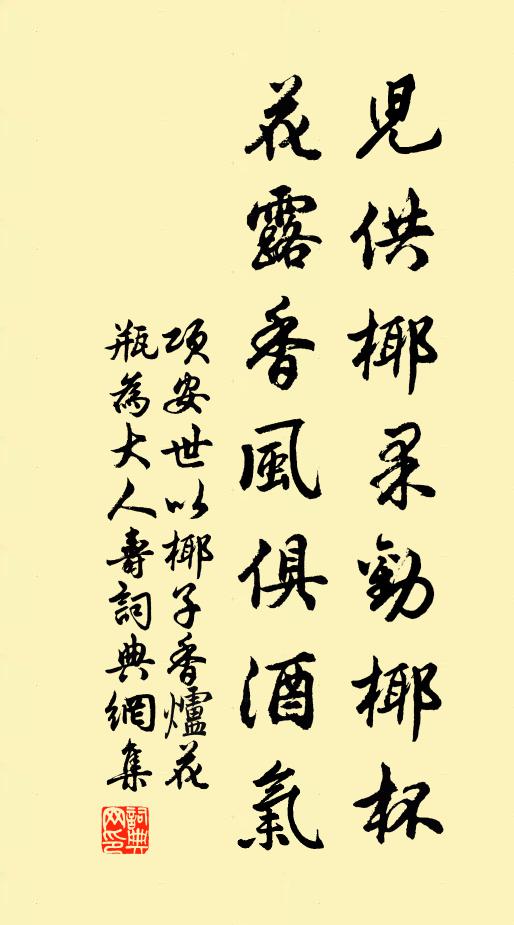 児供椰果勸椰杯
花露香風俱酒氣
項安世以椰子香爐花
瓶為大人壽詞典網集
詞典網印